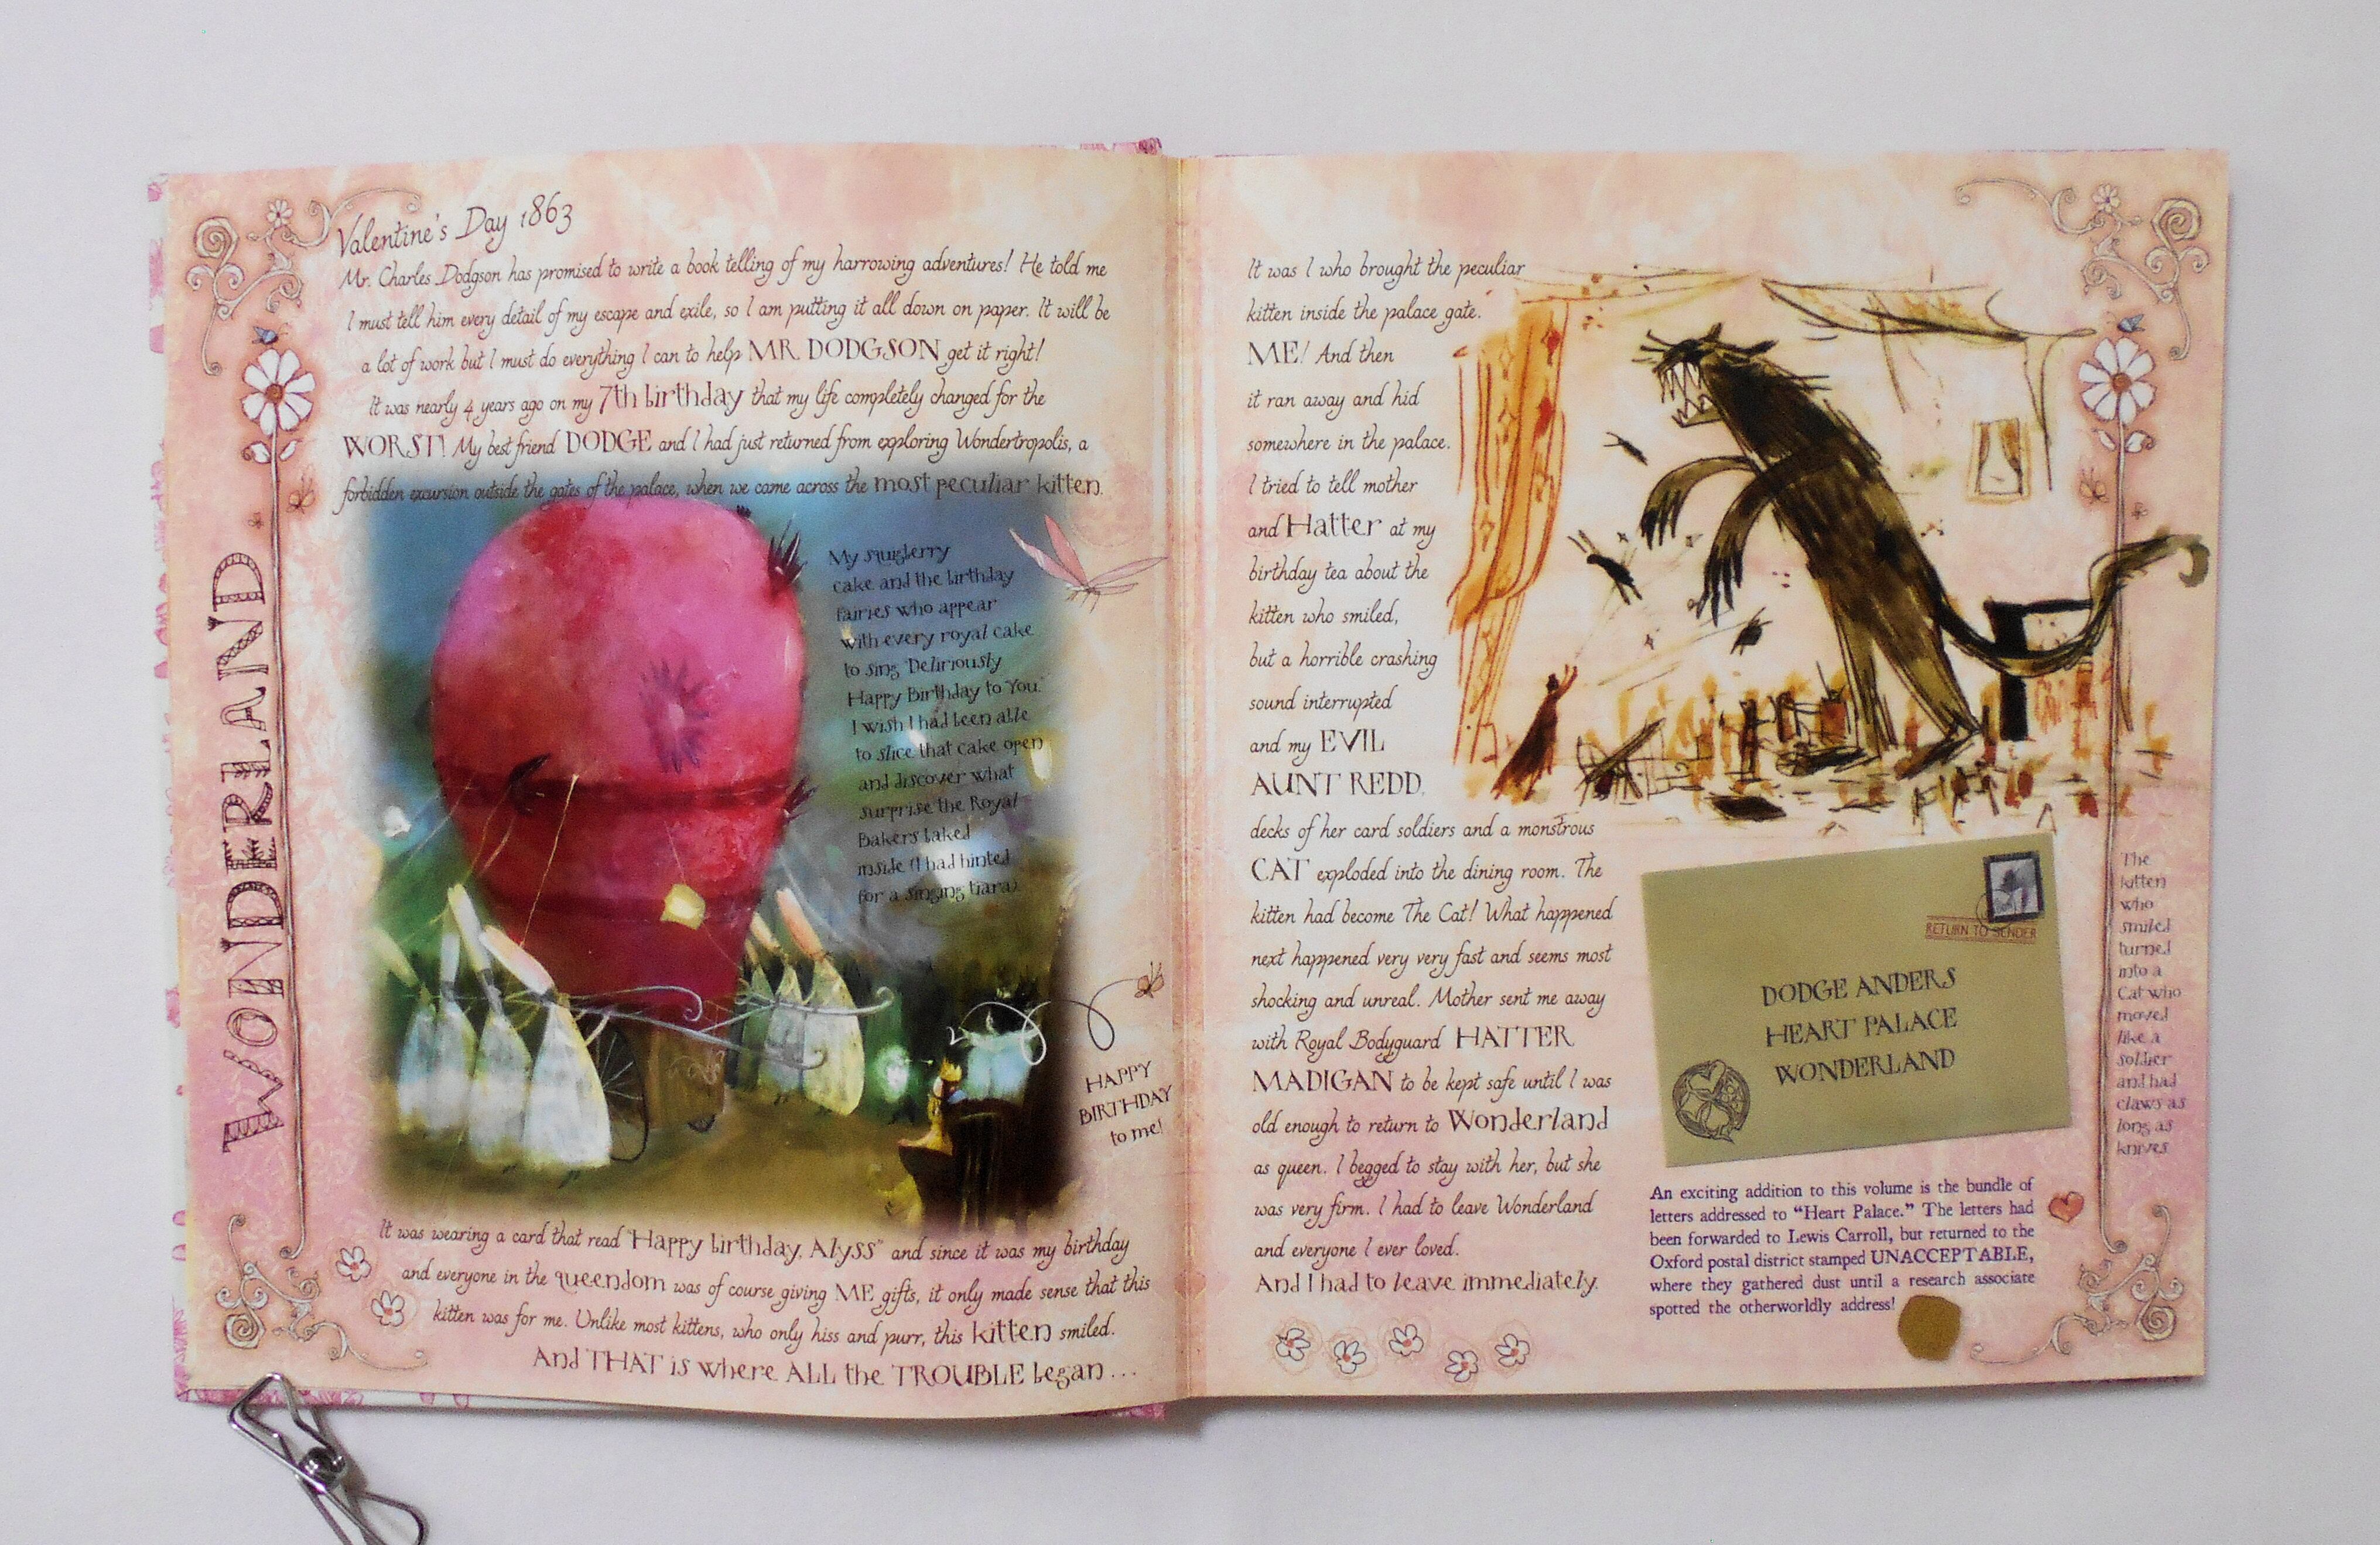 WONDERLAND
Valentine's Day 1863
Mr. Charles Dodgson has promised to write a book telling of my harrowing adventures! He told me
I must tell him every detail of my escape and exile, so I am putting it all down on paper. It will be
a lot of work but I must do everything I can to help MR. DODGSON get it right!
It was nearly 4 years ago on my 7th birthday that my life completely changed for the
WORST! My best friend DODGE and I had just returned from exploring Wondertropolis, a
forbidden excursion outside the gates of the palace, when we came across the most peculiar kitten.
My squigberry
cake and the birthday
fairies who appear
with every royal cake
to sing "Deliriously
Happy Birthday to You."
I wish I had been able
to slice that cake open
and discover what
surprise the Royal
Bakers baked
inside (I had hinted
for a singing tiara).
HAPPY
BIRTHDAY
to me!
It was wearing a card that read "Happy birthday, Alyss" and since it was my birthday
and everyone in the queendom was of course giving ME gifts, it only made sense that this
kitten was for me. Unlike most kittens, who only hiss and purr, this kitten smiled.
And THAT is where ALL the TROUBLE began...
It was I who brought the peculiar
kitten inside the palace gate.
ME! And then
it ran away and hid
somewhere in the palace.
I tried to tell mother
and Hatter at my
birthday tea about the
kitten who smiled,
but a horrible crashing
sound interrupted
and my EVIL
AUNT REDD,
decks of her card soldiers and a monstrous
CAT exploded into the dining room. The
kitten had become The Cat! What happened
next happened very very fast and seems most
shocking and unreal. Mother sent me away
with Royal Bodyguard HATTER
MADIGAN to be kept safe until I was
old enough to return to Wonderland
as queen. I begged to stay with her, but she
was very firm. I had to leave Wonderland
and everyone I ever loved.
And I had to leave immediately.
RETURN TO SENDER
DODGE ANDERS
HEART PALACE
WONDERLAND
The
kitten
who
smiled
turned
into a
Cat who
moved
like a
soldier
and had
claws as
long as
knives
An exciting addition to this volume is the bundle of
letters addressed to "Heart Palace." The letters had
been forwarded to Lewis Carroll, but returned to the
Oxford postal district stamped UNACCEPTABLE,
where they gathered dust until a research associate
spotted the otherworldly address!